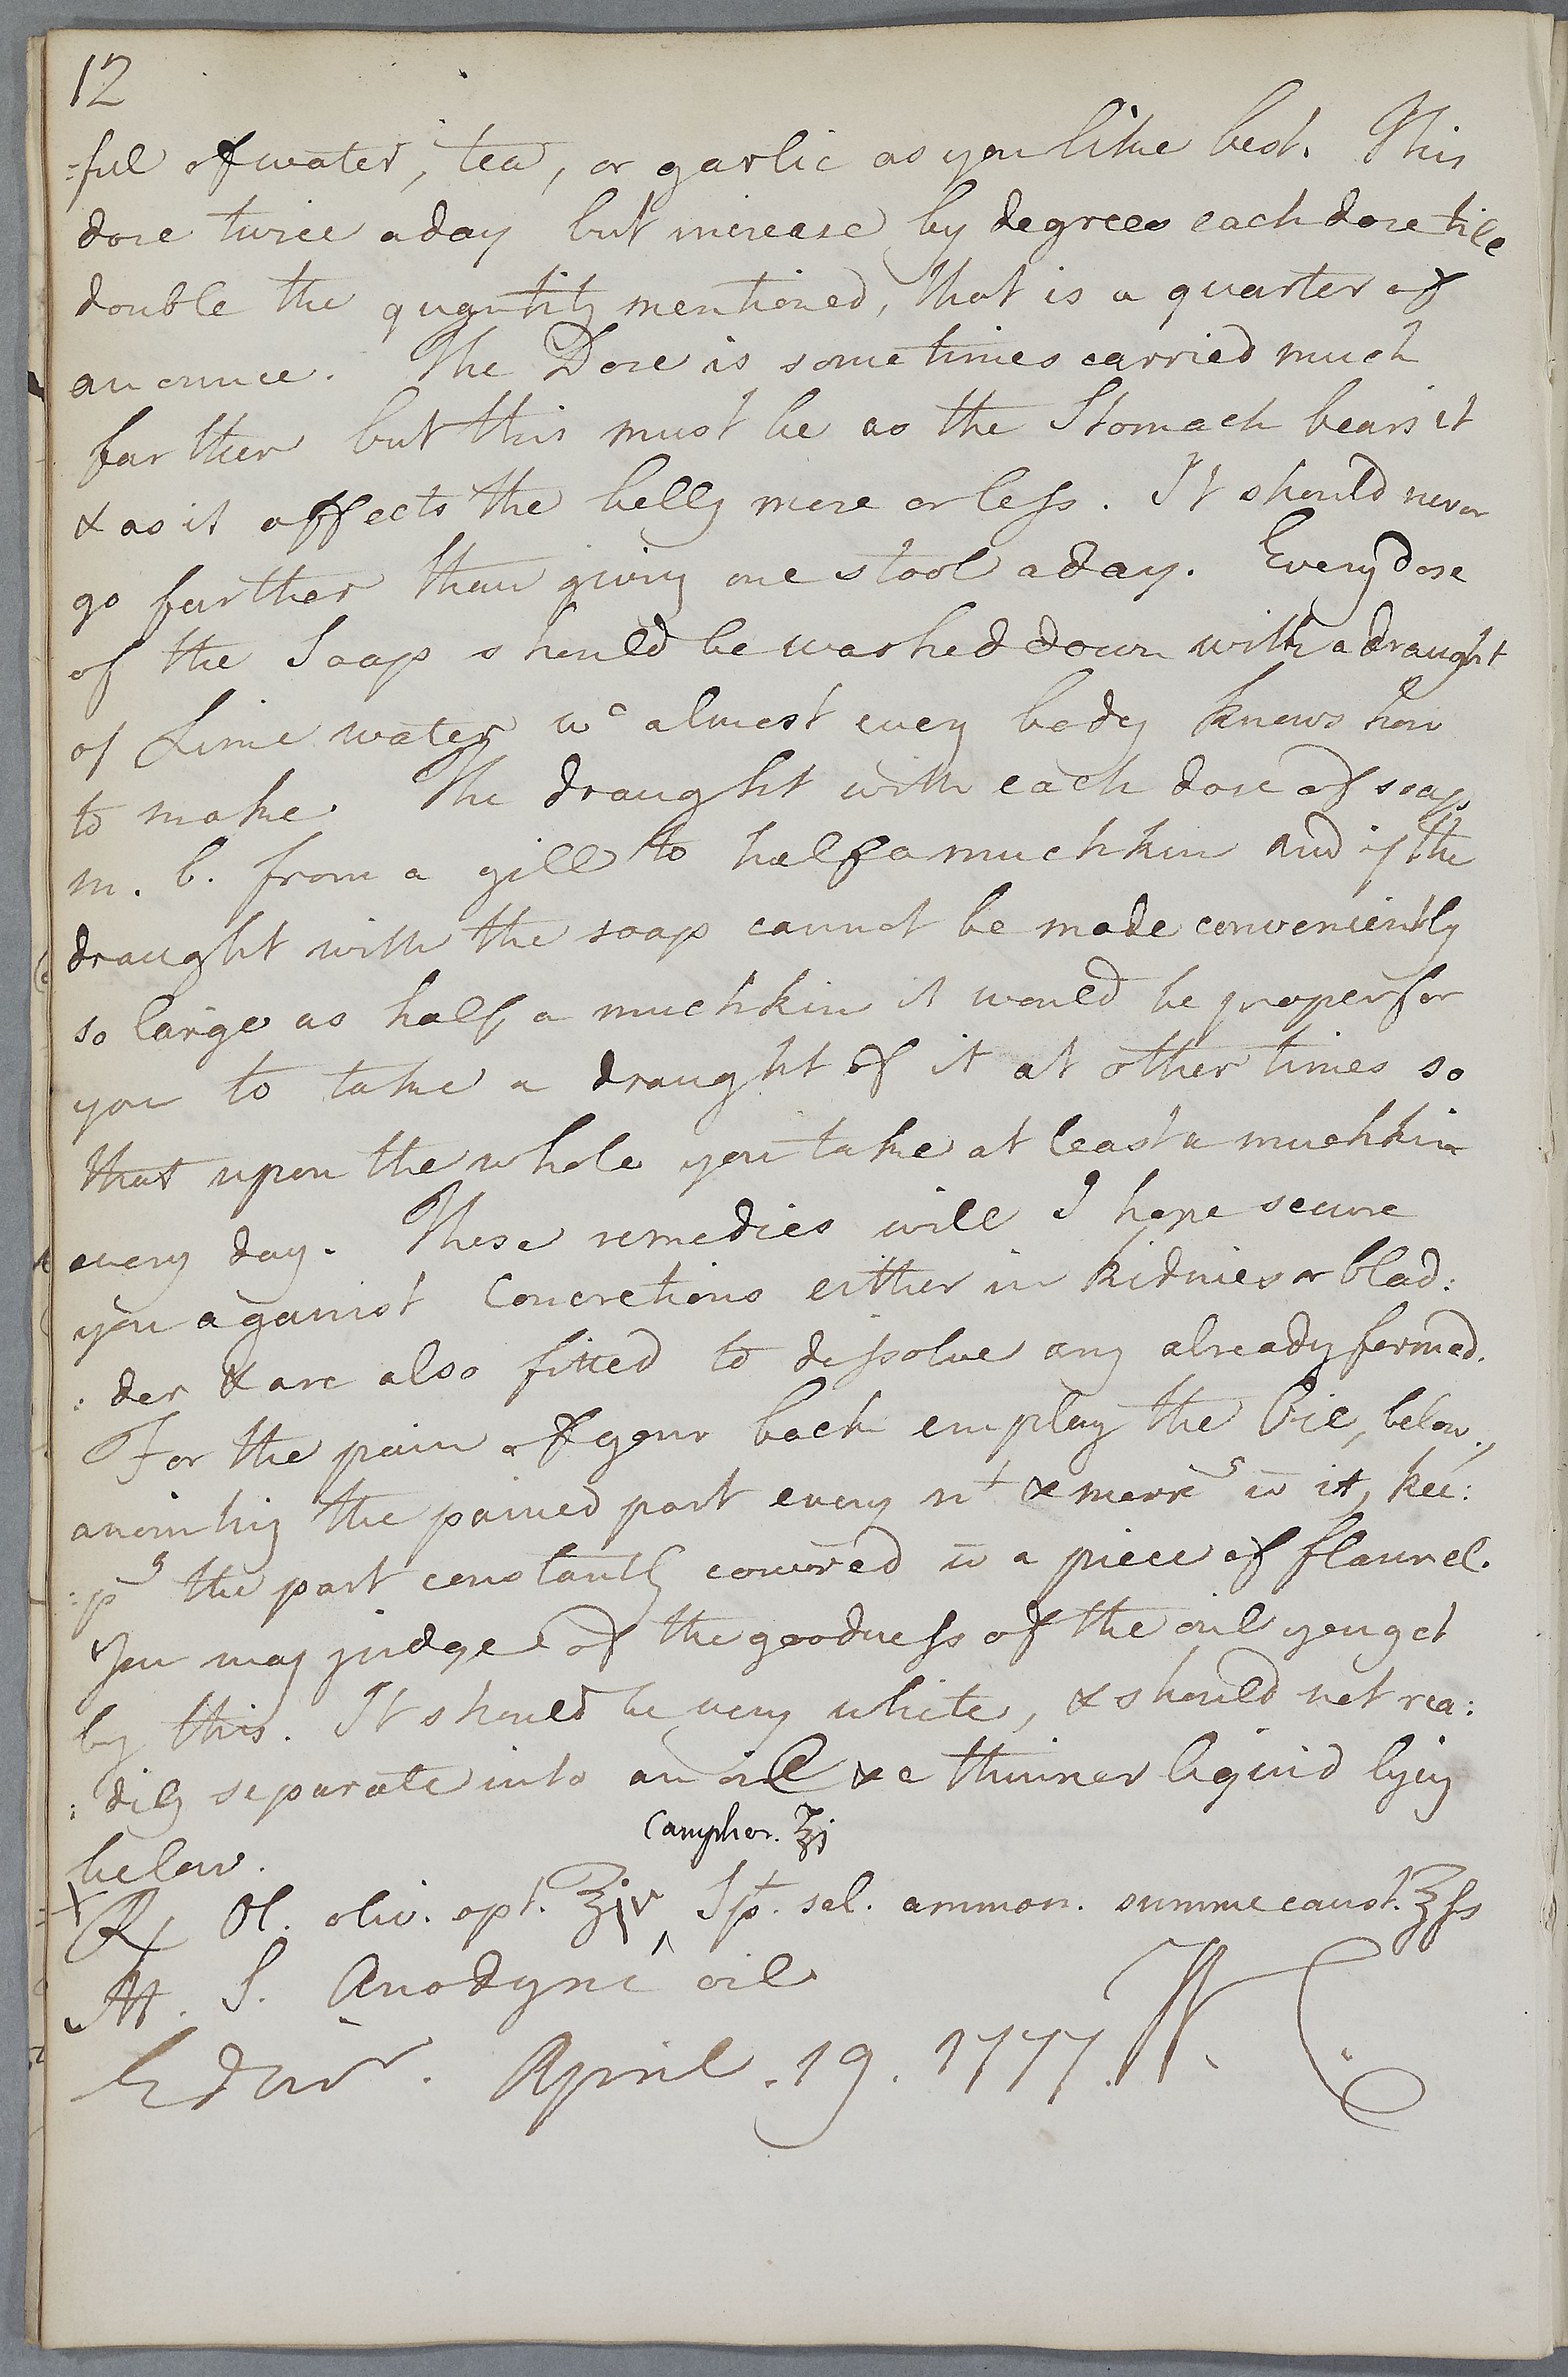 12
=ful of water, tea, or garlic as you like best. This
dose twice a day but increase by degrees each dose till
double the quantity mentioned, that is a quarter of
an ounce. The Dose is sometimes carried much
farther but this must be as the Stomach bears it
& as it affects the belly more or leſs. It should never
go further than giving one stool a day. Every dose
of the Soap should be washed down with a draught
of Lime water wc almost every body knows how
to make. The draught with each dose of soap
m. b. from a gill to half a muchkin and if the
draught with the soap cannot be made conveniently
so large as half a muchkin it would be proper for
you to take a draught of it at other times so
that upon the whole you take at least a muchkin
every day. These remedies will I hope secure
you against Concretions either in Kidnies or blad:
:der & are also fitted to diſsolve any already formed.
For the pain of your back employ the Oil, below,
anointing the pained part every nt & mornS w̄ it, kee:
:pg the part constantly covered w̄ a piece of flannel.
You may judge of the goodneſs of the oil you get
by this. It should be very white, & should not rea:
:dily separate into an oil & a thinner liquid lying
below.
Camphor. ʒj
℞ Ol. oliv. opt. ℥iv ^ Spt. sal. ammon. summe caust. ℥ſs
M. S. Anodyne oil
Edinr. April. 19. 1777. W. C.